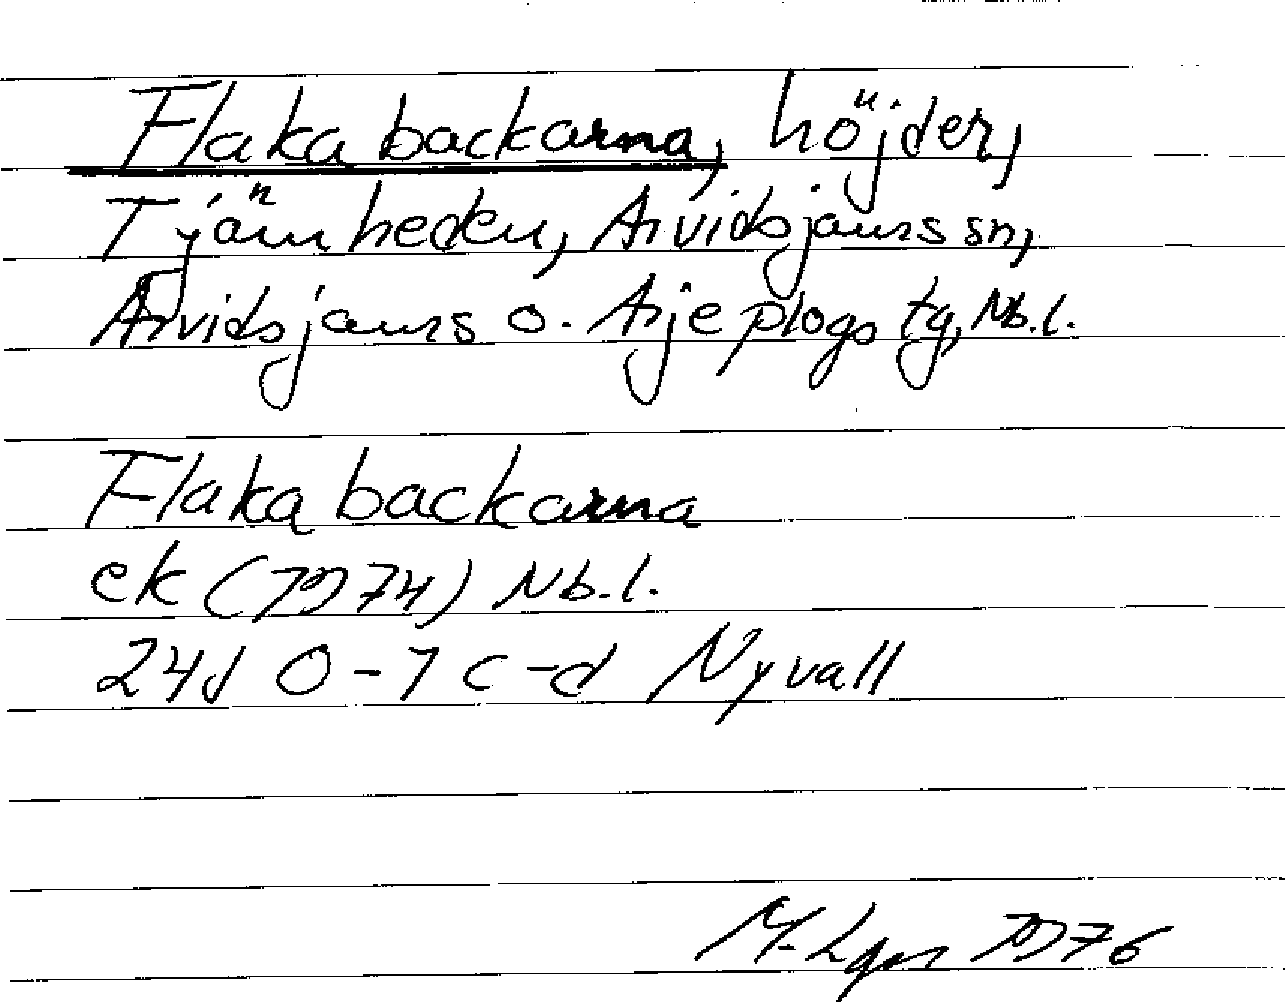 Flakabackarna, höjder,
Tjärnheden, Arvidsjaurs sn,
Arvidsjaurs o. Arjeplogs tg, Nb.l.
Flakabackarna
ek (1974) Nb.l.
24J 0-1 c-d Nyvall
1976